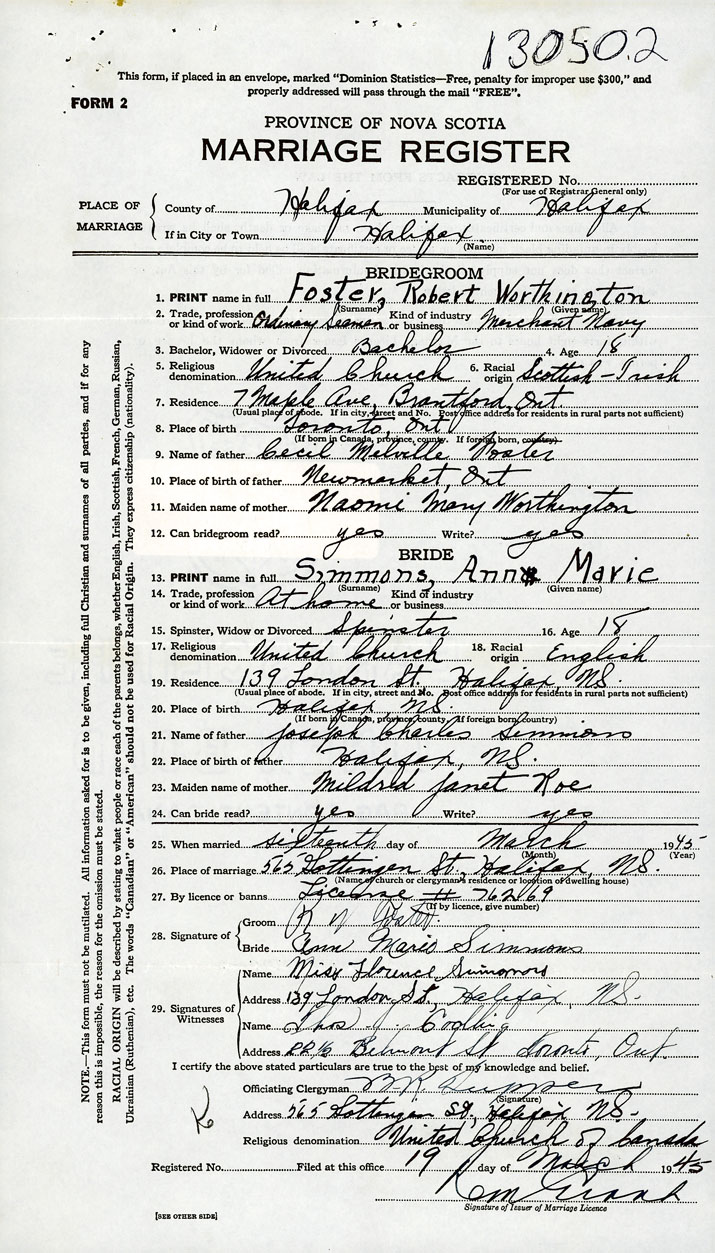 130502
This form, if placed in an envelope, marked "Dominion Statistics—Free, penalty for improper use $300," and
properly addressed will pass through the mail "FREE".
FORM 2
PROVINCE OF NOVA SCOTIA
MARRIAGE REGISTER
REGISTERED No.
(For use of Registrar General only)
PLACE OF MARRIAGE
County of Halifax Municipality of Halifax
If in City or Town Halifax
(Name)
BRIDEGROOM
1. PRINT name in full Foster, Robert Worthington
(Surname) (Given name)
2. Trade, profession or kind of work Ordinary Seaman Kind of industry or business Merchant Navy
3. Bachelor, Widower or Divorced Bachelor 4. Age 18
5. Religious denomination United Church 6. Racial origin Scottish-Irish
7. Residence 7 Maple Ave, Brantford, Ont.
(Usual place of abode. If in city, street and No. Post office address for residents in rural parts not sufficient)
8. Place of birth Toronto, Ont
(If born in Canada, province, county. If foreign born, country)
9. Name of father Cecil Melville Foster
10. Place of birth of father Newmarket, Ont
11. Maiden name of mother Naomi Mary Worthington
12. Can bridegroom read? yes Write? yes
BRIDE
13. PRINT name in full Simmons, Ann Marie
(Surname) (Given name)
14. Trade, profession or kind of work At home Kind of industry or business
15. Spinster, Widow or Divorced Spinster 16. Age 18
17. Religious denomination United Church 18. Racial origin English
19. Residence 139 London St. Halifax, NS.
(Usual place of abode. If in city, street and No. Post office address for residents in rural parts not sufficient)
20. Place of birth Halifax, NS.
(If born in Canada, province, county. If foreign born, country)
21. Name of father Joseph Charles Simmons
22. Place of birth of father Halifax, NS.
23. Maiden name of mother Mildred Janet Roe
24. Can bride read? yes Write? yes
25. When married sixteenth day of March 1945
(Month) (Year)
26. Place of marriage 565 Gottingen St., Halifax, NS.
(Name of church or clergyman's residence or location of dwelling house)
27. By licence or banns Licence # 76269
(If by licence, give number)
28. Signature of
Groom R W Foster
Bride Ann Marie Simmons
29. Signatures of Witnesses
Name Miss Florence Simmons
Address 139 London St., Halifax, NS.
Name Thos J.
Address 22½ Belmont St Toronto, Ont.
I certify the above stated particulars are true to the best of my knowledge and belief.
Officiating Clergyman
(Signature)
Address 565 Gottingen St, Halifax NS.
Religious denomination United Church of Canada
Registered No. Filed at this office 19 day of March 1945
Signature of Issuer of Marriage Licence
[SEE OTHER SIDE]
NOTE.—This form must not be mutilated. All information asked for is to be given, including full Christian and surnames of all parties, and if for any
reason this is impossible, the reason for the omission must be stated.
RACIAL ORIGIN will be described by stating to what people or race each of the parents belongs, whether English, Irish, Scottish, French, German, Russian,
Ukrainian (Ruthenian), etc. The words "Canadian" or "American" should not be used for Racial Origin. They express citizenship (nationality).